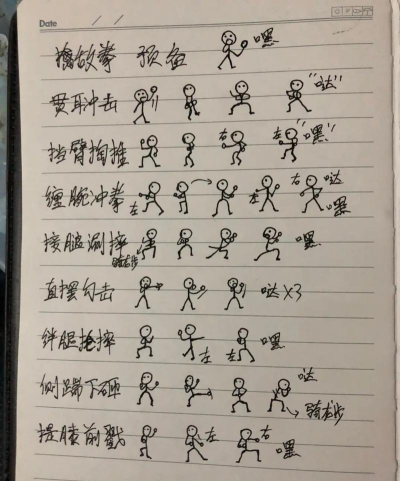 Date
擒敌拳 预备 嘿
贯耳冲击 "哒"
挡臂掏推 右 左 "嘿"
缠腕冲拳 左 左 右 哒 嘿
接腿涮摔 骑右步 嘿
直摆勾击 哒×3
绊腿抢摔 左 左 嘿
侧踹下砸 哒 骑右步
提膝前戳 左 右 嘿